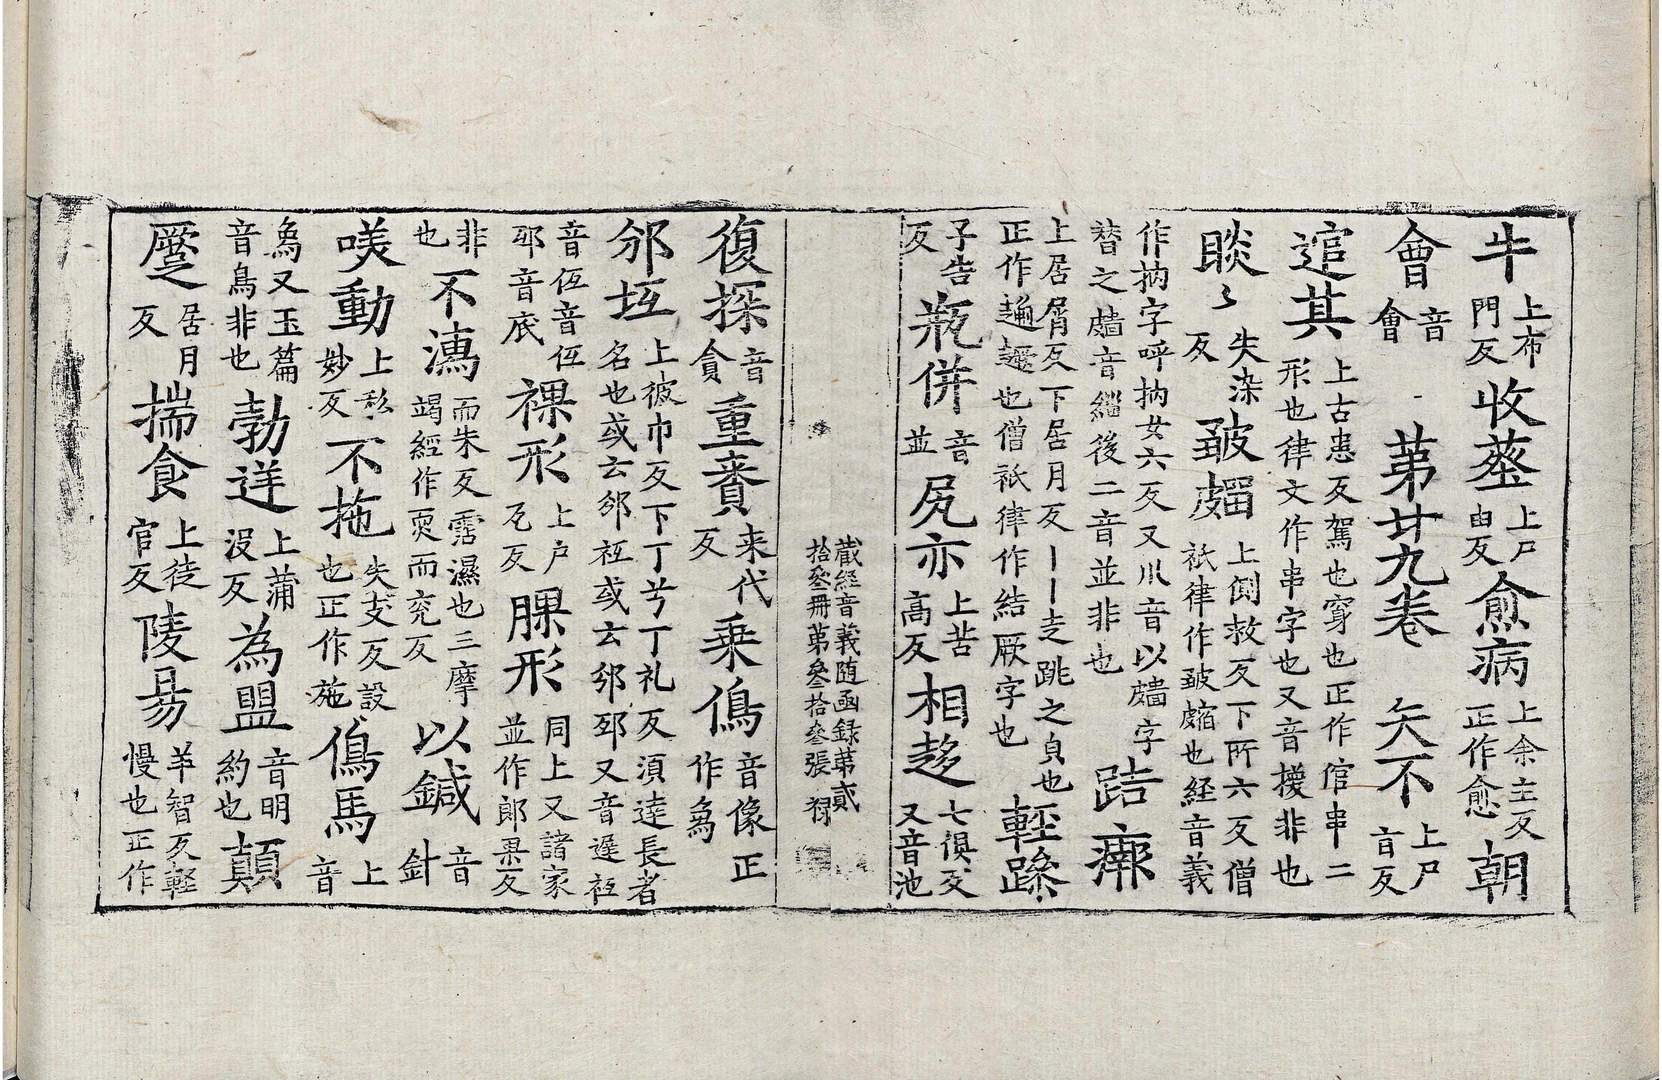 牛上布門反收蒸上尸由反愈病上余主反正作愈朝
會音會第廿九卷矢不上尸盲反
逭其上古患反駕也穿也正作倌串二形也律文作串字也又音擐非也
睒〻失染反皺𪉩上側救反下所六反僧祇律作皺縮也経音義
作抐字呼抐女六反又川音以𪉩字替之𪉩音緇後二音並非也䠏㾿
上居屑反下居月反丨丨走跳之皃也正作趌趰也僧祇律作結厥字也輕躁
子告反瓶併音並尻亦上苦高反相趍七俱反又音池
藏經音義随函録第貳拾叄冊第叄拾叄張 禄
復探音貪重賚来代反乗傿音像正作為
邠坘上彼巾反下丁兮丁礼反湏逹長者名也或云邠祁或云邠邳又音遲祁
音伍音伍邳音底裸形上户瓦反脶形同上又諸家並作郎果反
非也不㵧而朱反霑濕也三摩竭經作耎而兖反以鍼音針
𠲿動上私妙反不拖失支反設也正作施傿馬上音
為又玉篇音鳥非也勃逆上蒲沒反為盟音明約也顛
蹷居月反揣食上徒官反陵易羊智反輕慢也正作